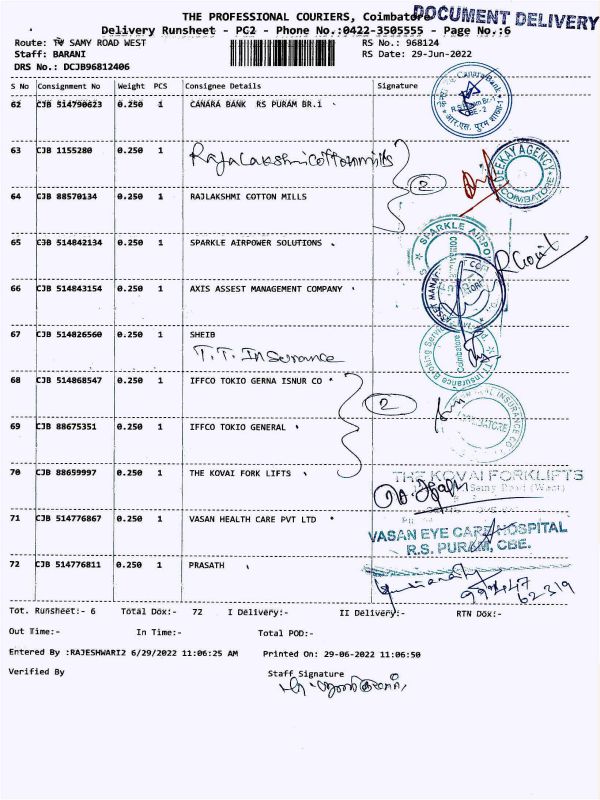 THE PROFESSIONAL COURIERS, Coimbatore
DOCUMENT DELIVERY
Delivery Runsheet - PC2 - Phone No.:0422-3505555 - Page No.:6
Route: TV SAMY ROAD WEST RS No.: 968124
Staff: BARANI RS Date: 29-Jun-2022
DRS No.: DCJB96812406
S No Consignment No Weight PCS Consignee Details Signature
62 CJB 514790623 0.250 1 CANARA BANK RS PURAM BR.1
63 CJB 1155280 0.250 1 Rajalakshmi Cotton mills
2
DEEKAY AGENCY
COIMBATORE
64 CJB 88570134 0.250 1 RAJLAKSHMI COTTON MILLS
65 CJB 514842134 0.250 1 SPARKLE AIRPOWER SOLUTIONS
66 CJB 514843154 0.250 1 AXIS ASSEST MANAGEMENT COMPANY
67 CJB 514826560 0.250 1 SHEIB
T.T. Insurance
68 CJB 514868547 0.250 1 IFFCO TOKIO GERNA ISNUR CO
2
69 CJB 88675351 0.250 1 IFFCO TOKIO GENERAL
70 CJB 88659997 0.250 1 THE KOVAI FORK LIFTS
THE KOVAI FORKLIFTS
71 CJB 514776867 0.250 1 VASAN HEALTH CARE PVT LTD
VASAN EYE CARE HOSPITAL
R.S. PURAM, CBE.
72 CJB 514776811 0.250 1 PRASATH
62319
Tot. Runsheet:- 6 Total Dox:- 72 I Delivery:- II Delivery:- RTN Dox:-
Out Time:- In Time:- Total POD:-
Entered By :RAJESHWARI2 6/29/2022 11:06:25 AM Printed On: 29-06-2022 11:06:50
Verified By Staff Signature